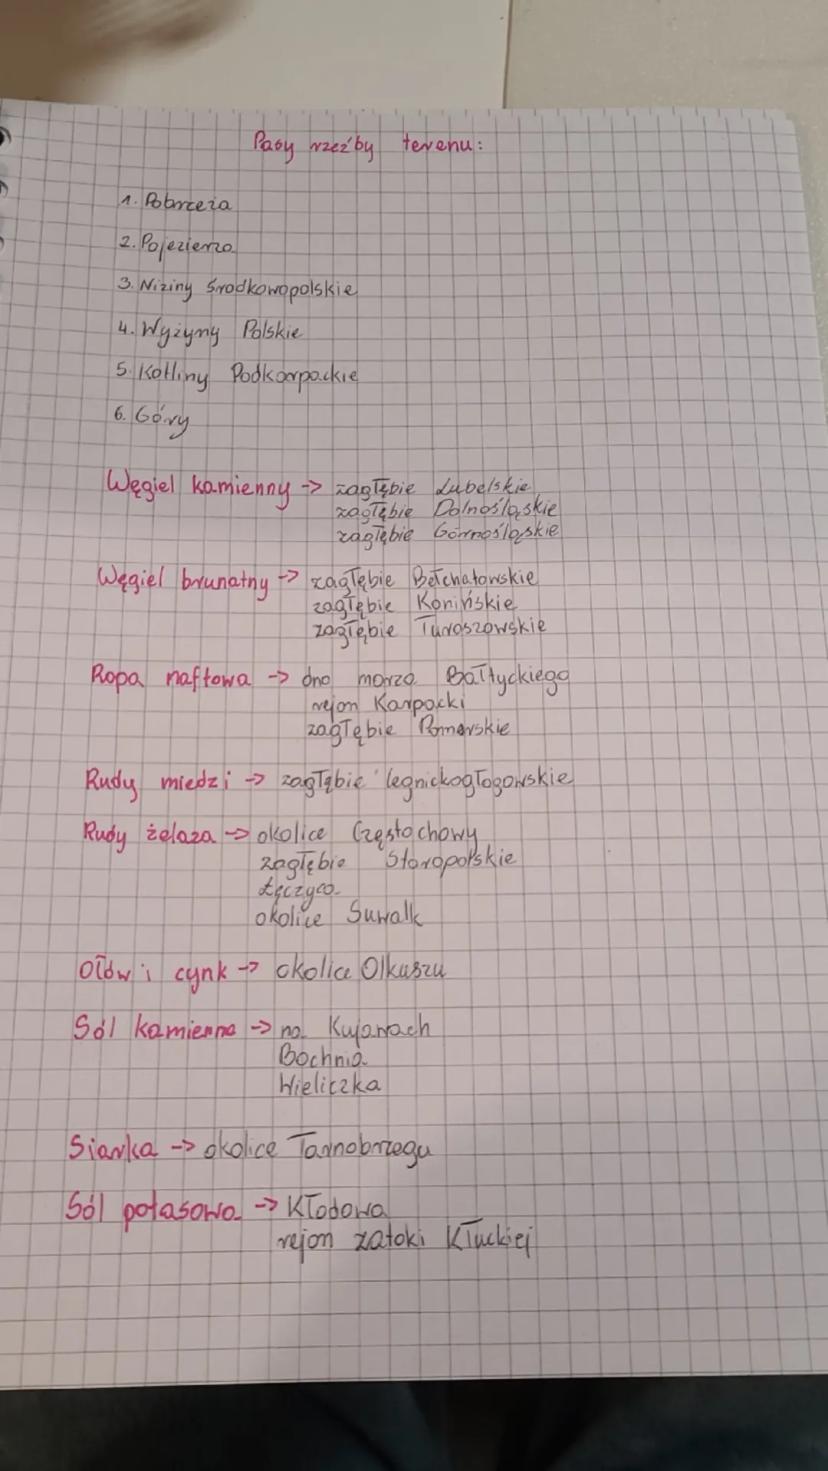 Pasy rzeźby terenu:
1. Pobrzeża
2. Pojezierza
3. Niziny środkowopolskie
4. Wyżyny Polskie
5. Kotliny Podkarpackie
6. Góry
Węgiel kamienny -> zagłębie Lubelskie
zagłębie Dolnośląskie
zagłębie Górnośląskie
Węgiel brunatny -> zagłębie Bełchatowskie
zagłębie Konińskie
zagłębie Turoszowskie
Ropa naftowa -> dno morza Bałtyckiego
rejon Karpacki
zagłębie Pomorskie
Rudy miedzi -> zagłębie legnickogłogowskie
Rudy żelaza -> okolice Częstochowy
zagłębie Staropolskie
Łęczyca
okolice Suwałk
Ołów i cynk -> okolice Olkuszu
Sól kamienna -> na Kujawach
Bochnia
Wieliczka
Siarka -> okolice Tarnobrzegu
Sól potasowa -> Kłodowa
rejon zatoki Kłuckiej